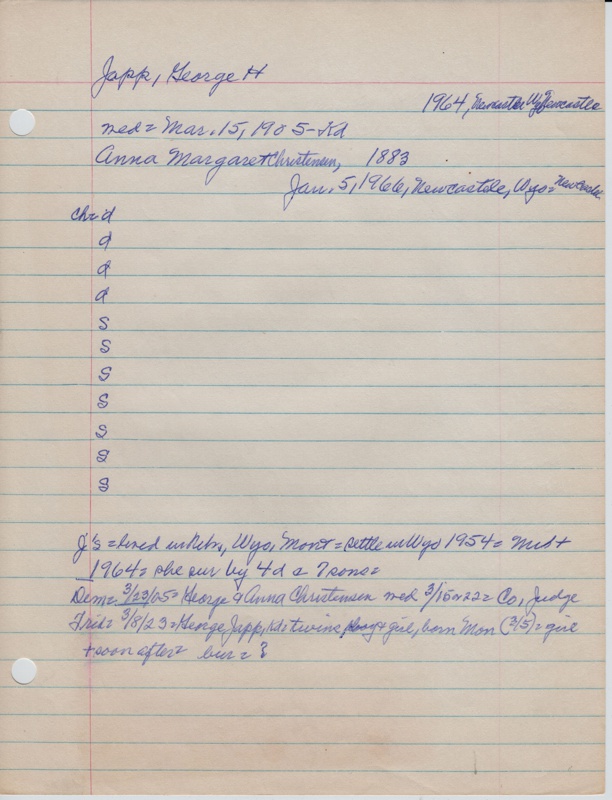 Japp, George H
1964, Newcastle Wyo Newcastle
med = Mar. 15, 1905 - Kd
Anna Margaret Christensen, 1883
Jan. 5, 1966, Newcastle, Wyo = Newcastle
ch = d
d
d
d
S
S
S
S
S
S
S
J's = lived in Nebr, Wyo, Mont = settle in Wyo 1954 =
1964 = she sur by 4 d & 7 sons =
Dem = 3/23/05 = George & Anna Christensen med 3/15 = Co, Judge
3/8/23 = George Japp, Kd = twins, boy & girl, born Mon (3/5) = girl
+ soon after = bur = ?